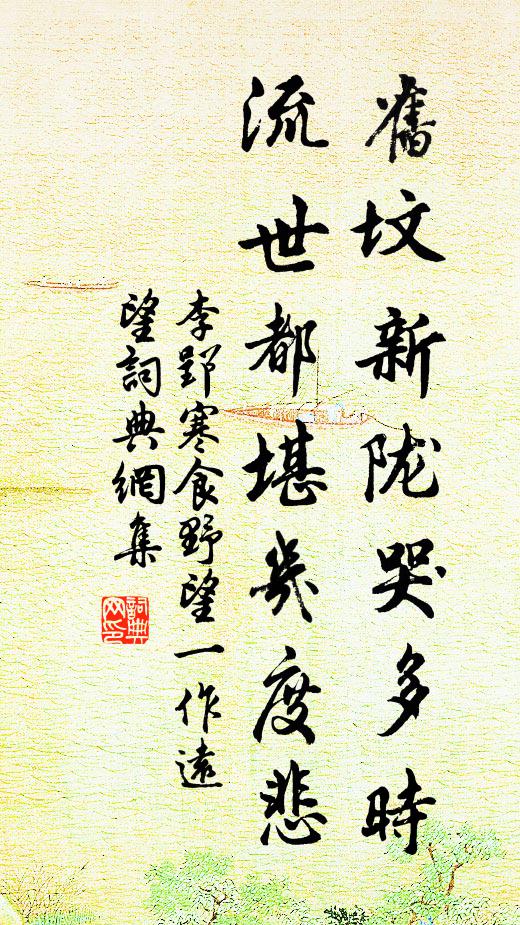 舊坟新陇哭多時
流世都堪幾度悲
李郢寒食野望一作遠
望詞典網集
詞典
网印